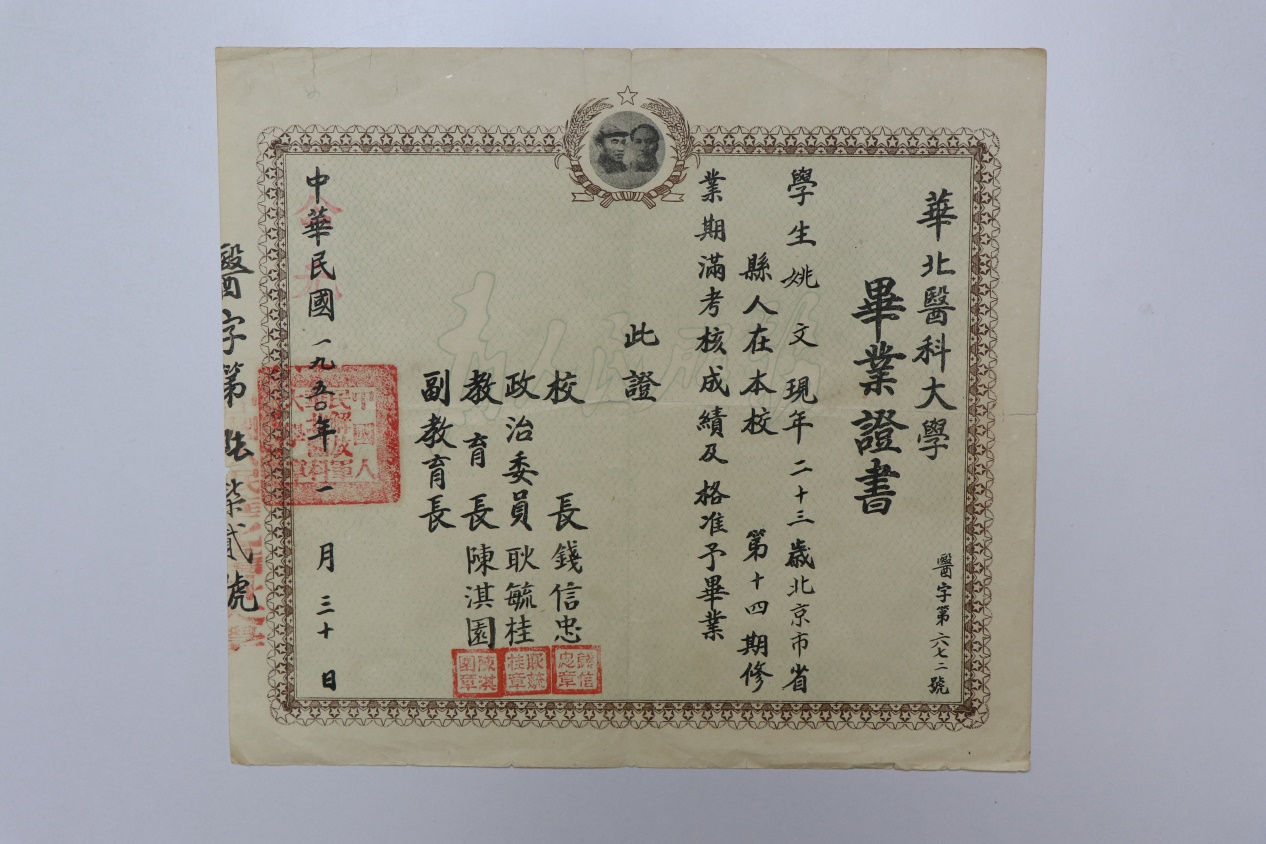 華北醫科大學
畢業證書
醫字第六七二號
學生姚文現年二十三歲北京市省
縣人在本校第十四期修
業期滿考核成績及格准予畢業
此證
校長錢信忠
政治委員耿毓桂
教育長陳淇園
副教育長
錢信忠章
耿毓桂章
陳淇園章
中華民國一九五〇年一月三十日
公元
醫字第陸柒貳號